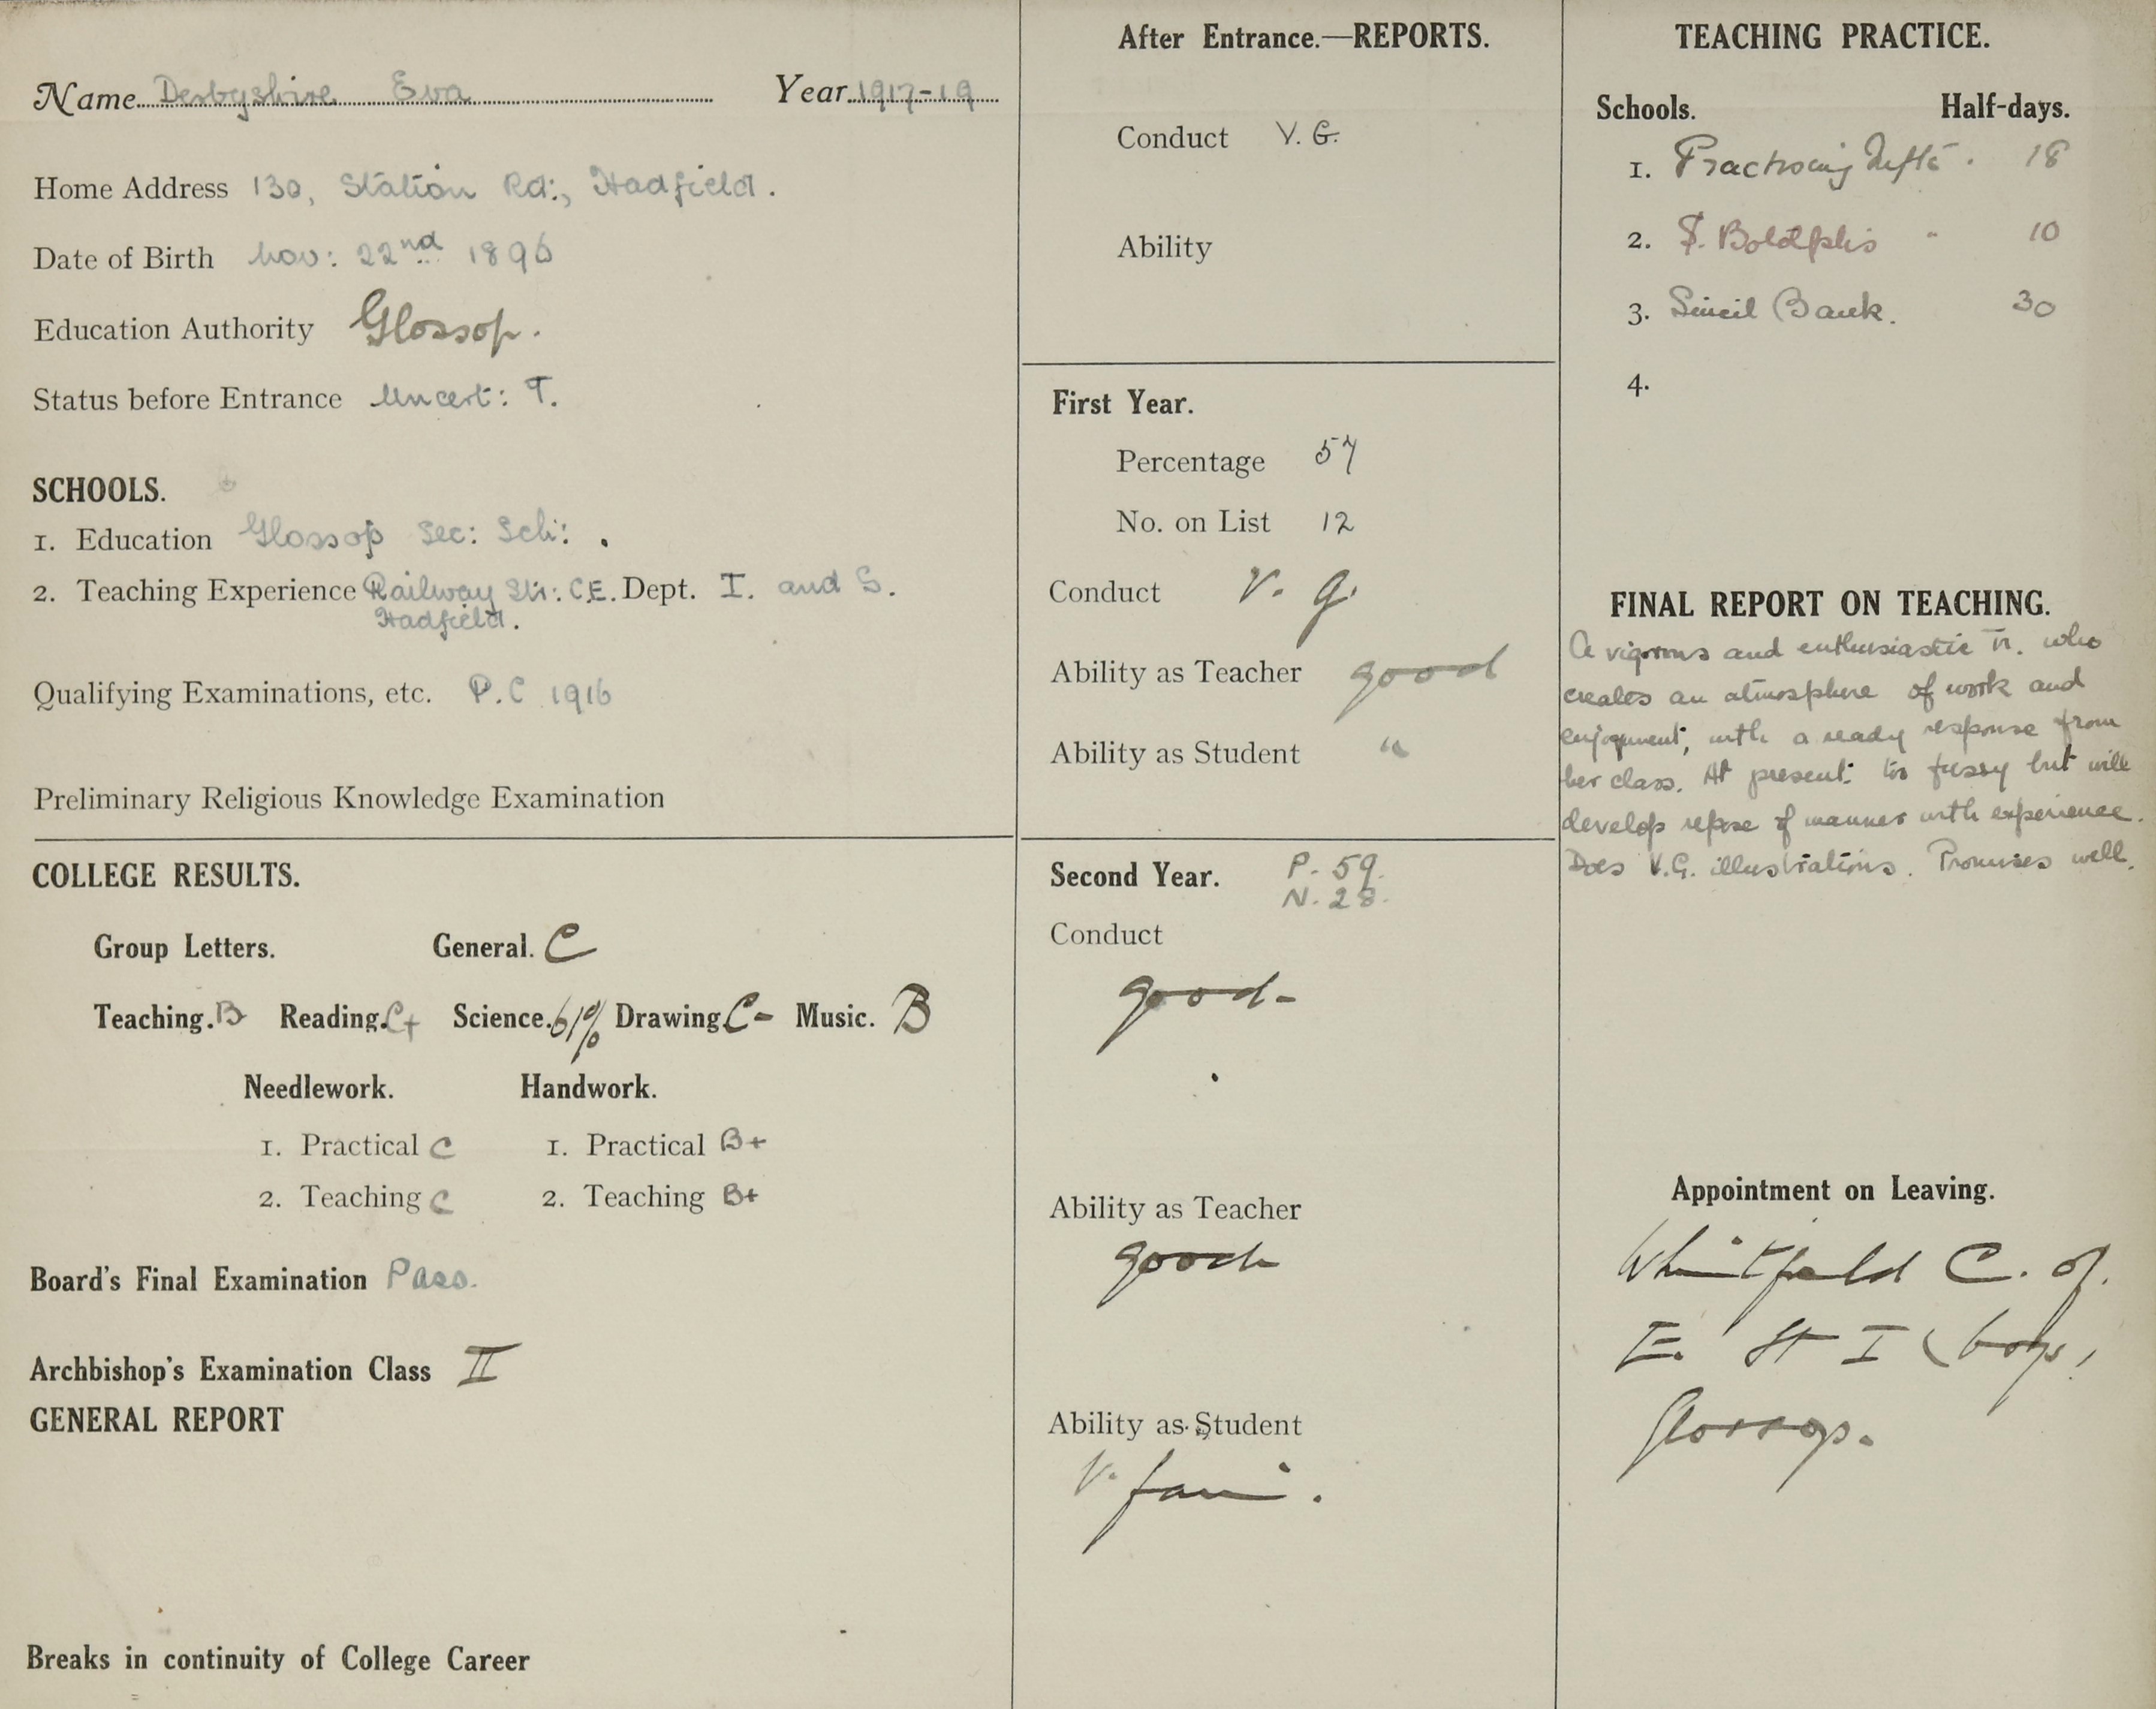 Name Derbyshire Eva Year 1917-19
Home Address 130, Station Rd:, Hadfield.
Date of Birth Nov: 22nd 1896
Education Authority Glossop.
Status before Entrance Uncert: T.
SCHOOLS.
1. Education Glossop Sec: Sch: .
2. Teaching Experience Railway Str: C.E. Dept. I. and S.
Hadfield.
Qualifying Examinations, etc. P.C 1916
Preliminary Religious Knowledge Examination
COLLEGE RESULTS.
Group Letters. General. C
Teaching. B Reading. C+ Science. 61% Drawing C- Music. B
Needlework. Handwork.
1. Practical C 1. Practical B+
2. Teaching C 2. Teaching B+
Board's Final Examination Pass.
Archbishop's Examination Class II
GENERAL REPORT
Breaks in continuity of College Career
After Entrance.—REPORTS.
Conduct V. G.
Ability
First Year.
Percentage 57
No. on List 12
Conduct V. g.
Ability as Teacher good
Ability as Student "
Second Year. P. 59.
N. 28.
Conduct
good-
Ability as Teacher
good
Ability as Student
V. fair.
TEACHING PRACTICE.
Schools. Half-days.
1. Practising Infts. 18
2. S. Botolph's " 10
3. Sincil Bank. 30
4.
FINAL REPORT ON TEACHING.
A vigorous and enthusiastic Tr. who
creates an atmosphere of work and
enjoyment, with a ready response from
her class. At present: too fussy but will
develop repose of manner with experience.
Does V.G. illustrations. Promises well.
Appointment on Leaving.
Whitfield C. of
E. St I (boys)
Glossop.